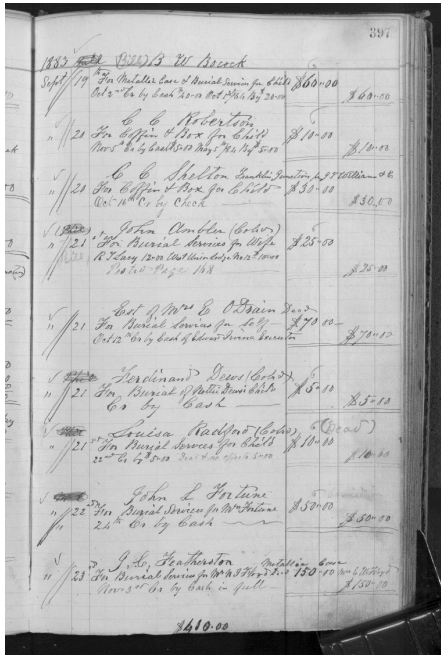 397
1883 (Bill) B W Bocock
Sept 19th For Metallic Case & Burial Service for Child $60-00
Oct 2nd Cr by Cash 20-00 Oct 1st /84 By $20-00 $60-00
C C Robertson
" 20 For Coffin & Box for Child $10-00
Nov 5th Cr by Cash $5-00 May 1st /84 By $5-00 $10-00
C C Shelton Franklin Junction for J P Williams & C
" 20 For Coffin & Box for Child $30-00
Oct 16th Cr by Check $30.00
John Ambler (Cold)
" 21st For Burial Services for Wife $25-00
R J Lacy 12-00 West Union Lodge No 12th 10-00
Posted Page 148 $25-00
Est of Mrs E O Drain Dead
" 21 For Burial Services for Self $70-00
Oct 12th Cr by Cash of Edwin Executor $70-00
Ferdinand Dews (Cold)
" 21 For Burial of Child $5-00
Cr by Cash $5-00
Louisa Radford (Cold) (Dead)
" 21st For Burial Services for Child $10-00
22nd Cr By $5-00 5-00 $10-00
John L Fortune
" 22nd For Burial Services for Mrs Fortune $50-00
24th Cr by Cash $50-00
J. C. Featherston Metallic Case
" 23rd For Burial Services for Mr 150-00
Nov 3rd Cr by Cash in full $150-00
$410.00